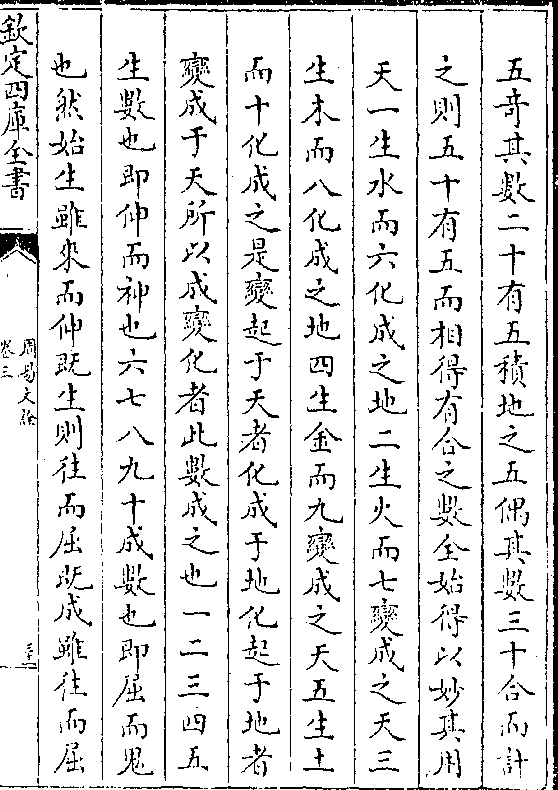 五奇其數二十有五積地之五偶其數三十合而計
之則五十有五而相得有合之數全始得以妙其用
天一生水而六化成之地二生火而七變成之天三
生木而八化成之地四生金而九變成之天五生土
而十化成之是變起于天者化成于地化起于地者
變成于天所以成變化者此數成之也一二三四五
生數也即伸而神也六七八九十成數也即屈而鬼
也然始生雖來而伸既生則往而屈既成雖往而屈
欽定四庫全書
周易文詮
卷三